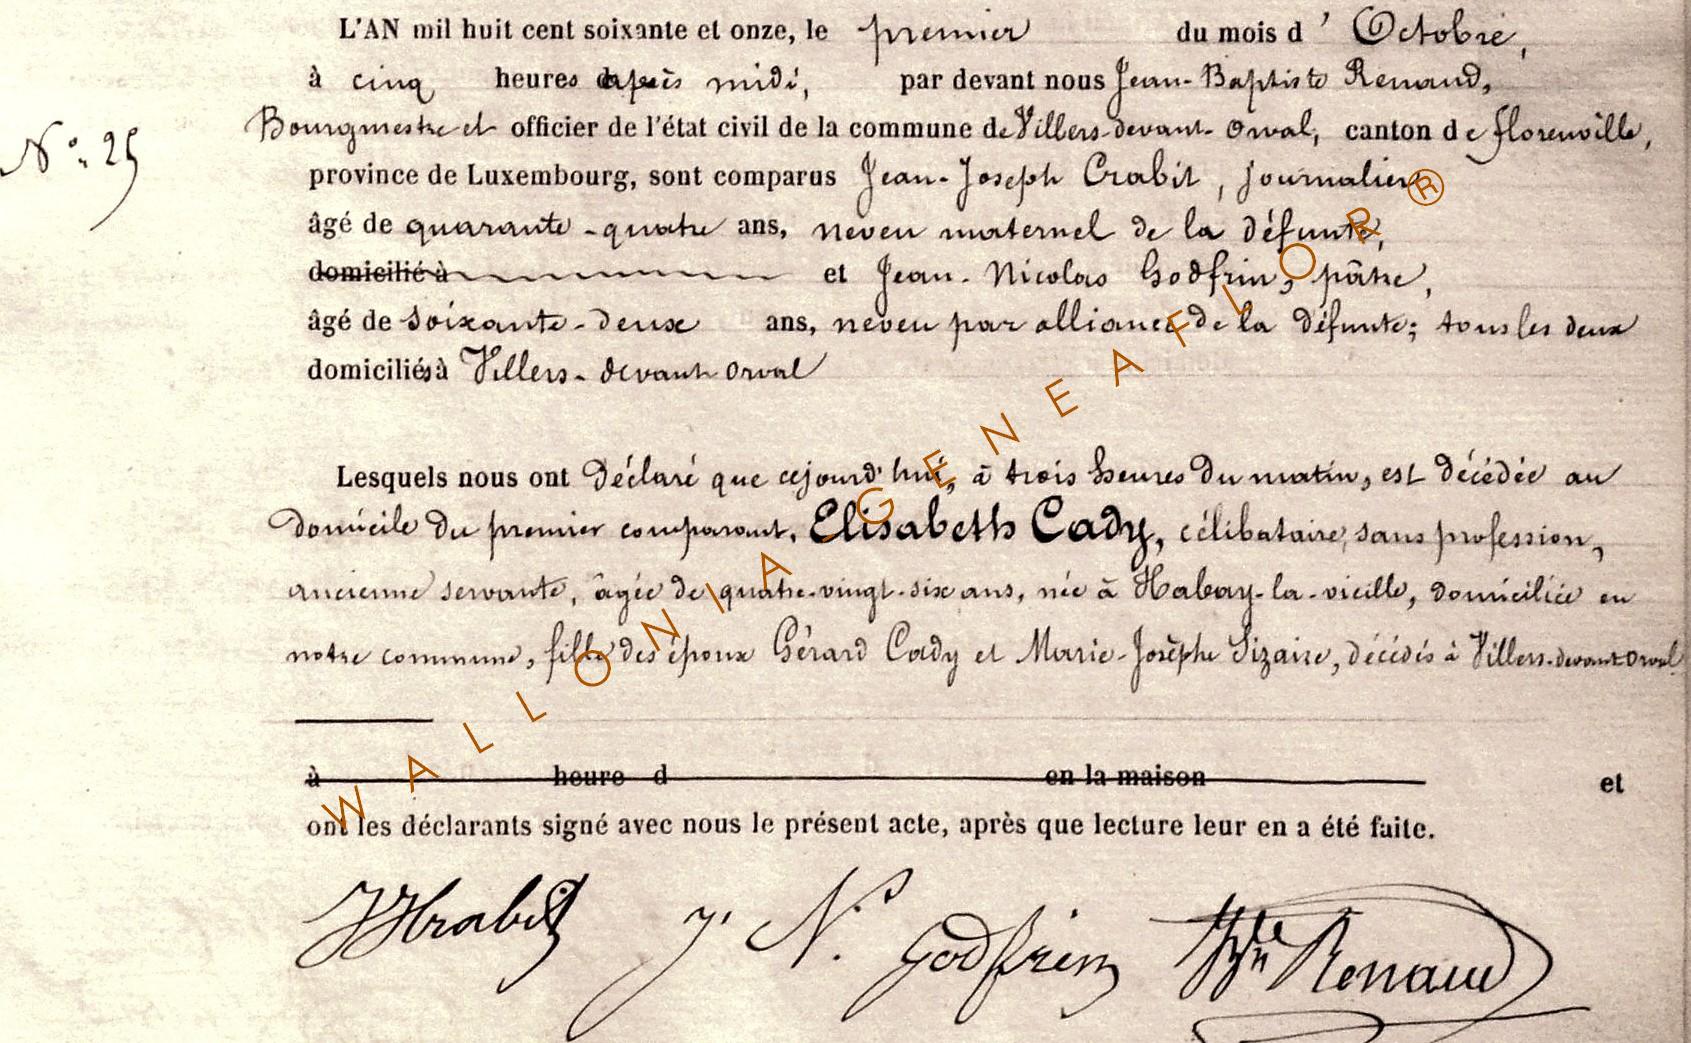 L'AN mil huit cent soixante et onze, le premier du mois d' Octobre,
à cinq heures après midi, par devant nous Jean-Baptiste Renaud,
N°. 25
Bourgmestre et officier de l'état civil de la commune de Villers-devant-Orval, canton de florenville,
province de Luxembourg, sont comparus Jean-Joseph Crabit, journalier
âgé de quarante-quatre ans, neveu maternel de la défunte,
domicilié à et Jean-Nicolas Godfrin, pâtre,
âgé de soixante-deux ans, neveu par alliance de la défunte; tous les deux
domiciliés à Villers-devant Orval
Lesquels nous ont déclaré que cejourd'hui, à trois heures du matin, est décédée au
domicile du premier comparant, Elisabeth Cady, célibataire, sans profession,
ancienne servante, âgée de quatre-vingt-six ans, née à Habay-la-vieille, domiciliée en
notre commune, fille des époux Gérard Cady et Marie-Josèphe Sizaire, décédés à Villers-devant Orval
à heure d en la maison et
ont les déclarants signé avec nous le présent acte, après que lecture leur en a été faite.
JJ Crabit J. N.s Godfrin Renaud
WALLONIA GENEAFLOR ®